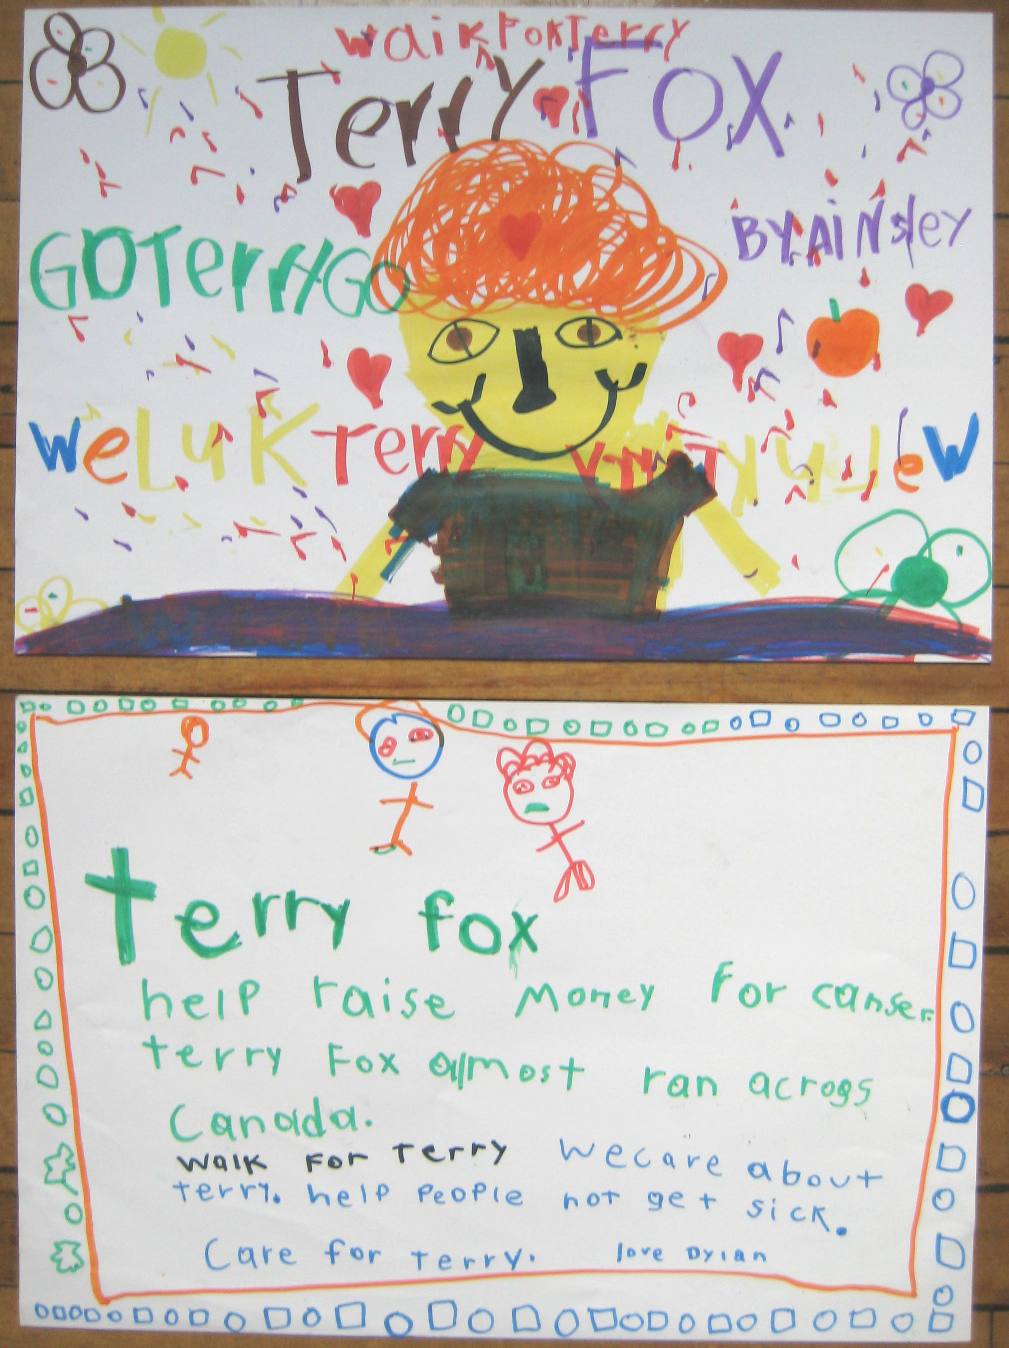 waik FoR Terry
Terry FOX
GOTerryGO
BY AiNsley
weLuK Terry
terry
weLuK
terry fox
help raise Money For canser.
terry Fox almost ran across
Canada.
walk For Terry we care about
terry. help People not get sick.
Care for terry. love Dylan